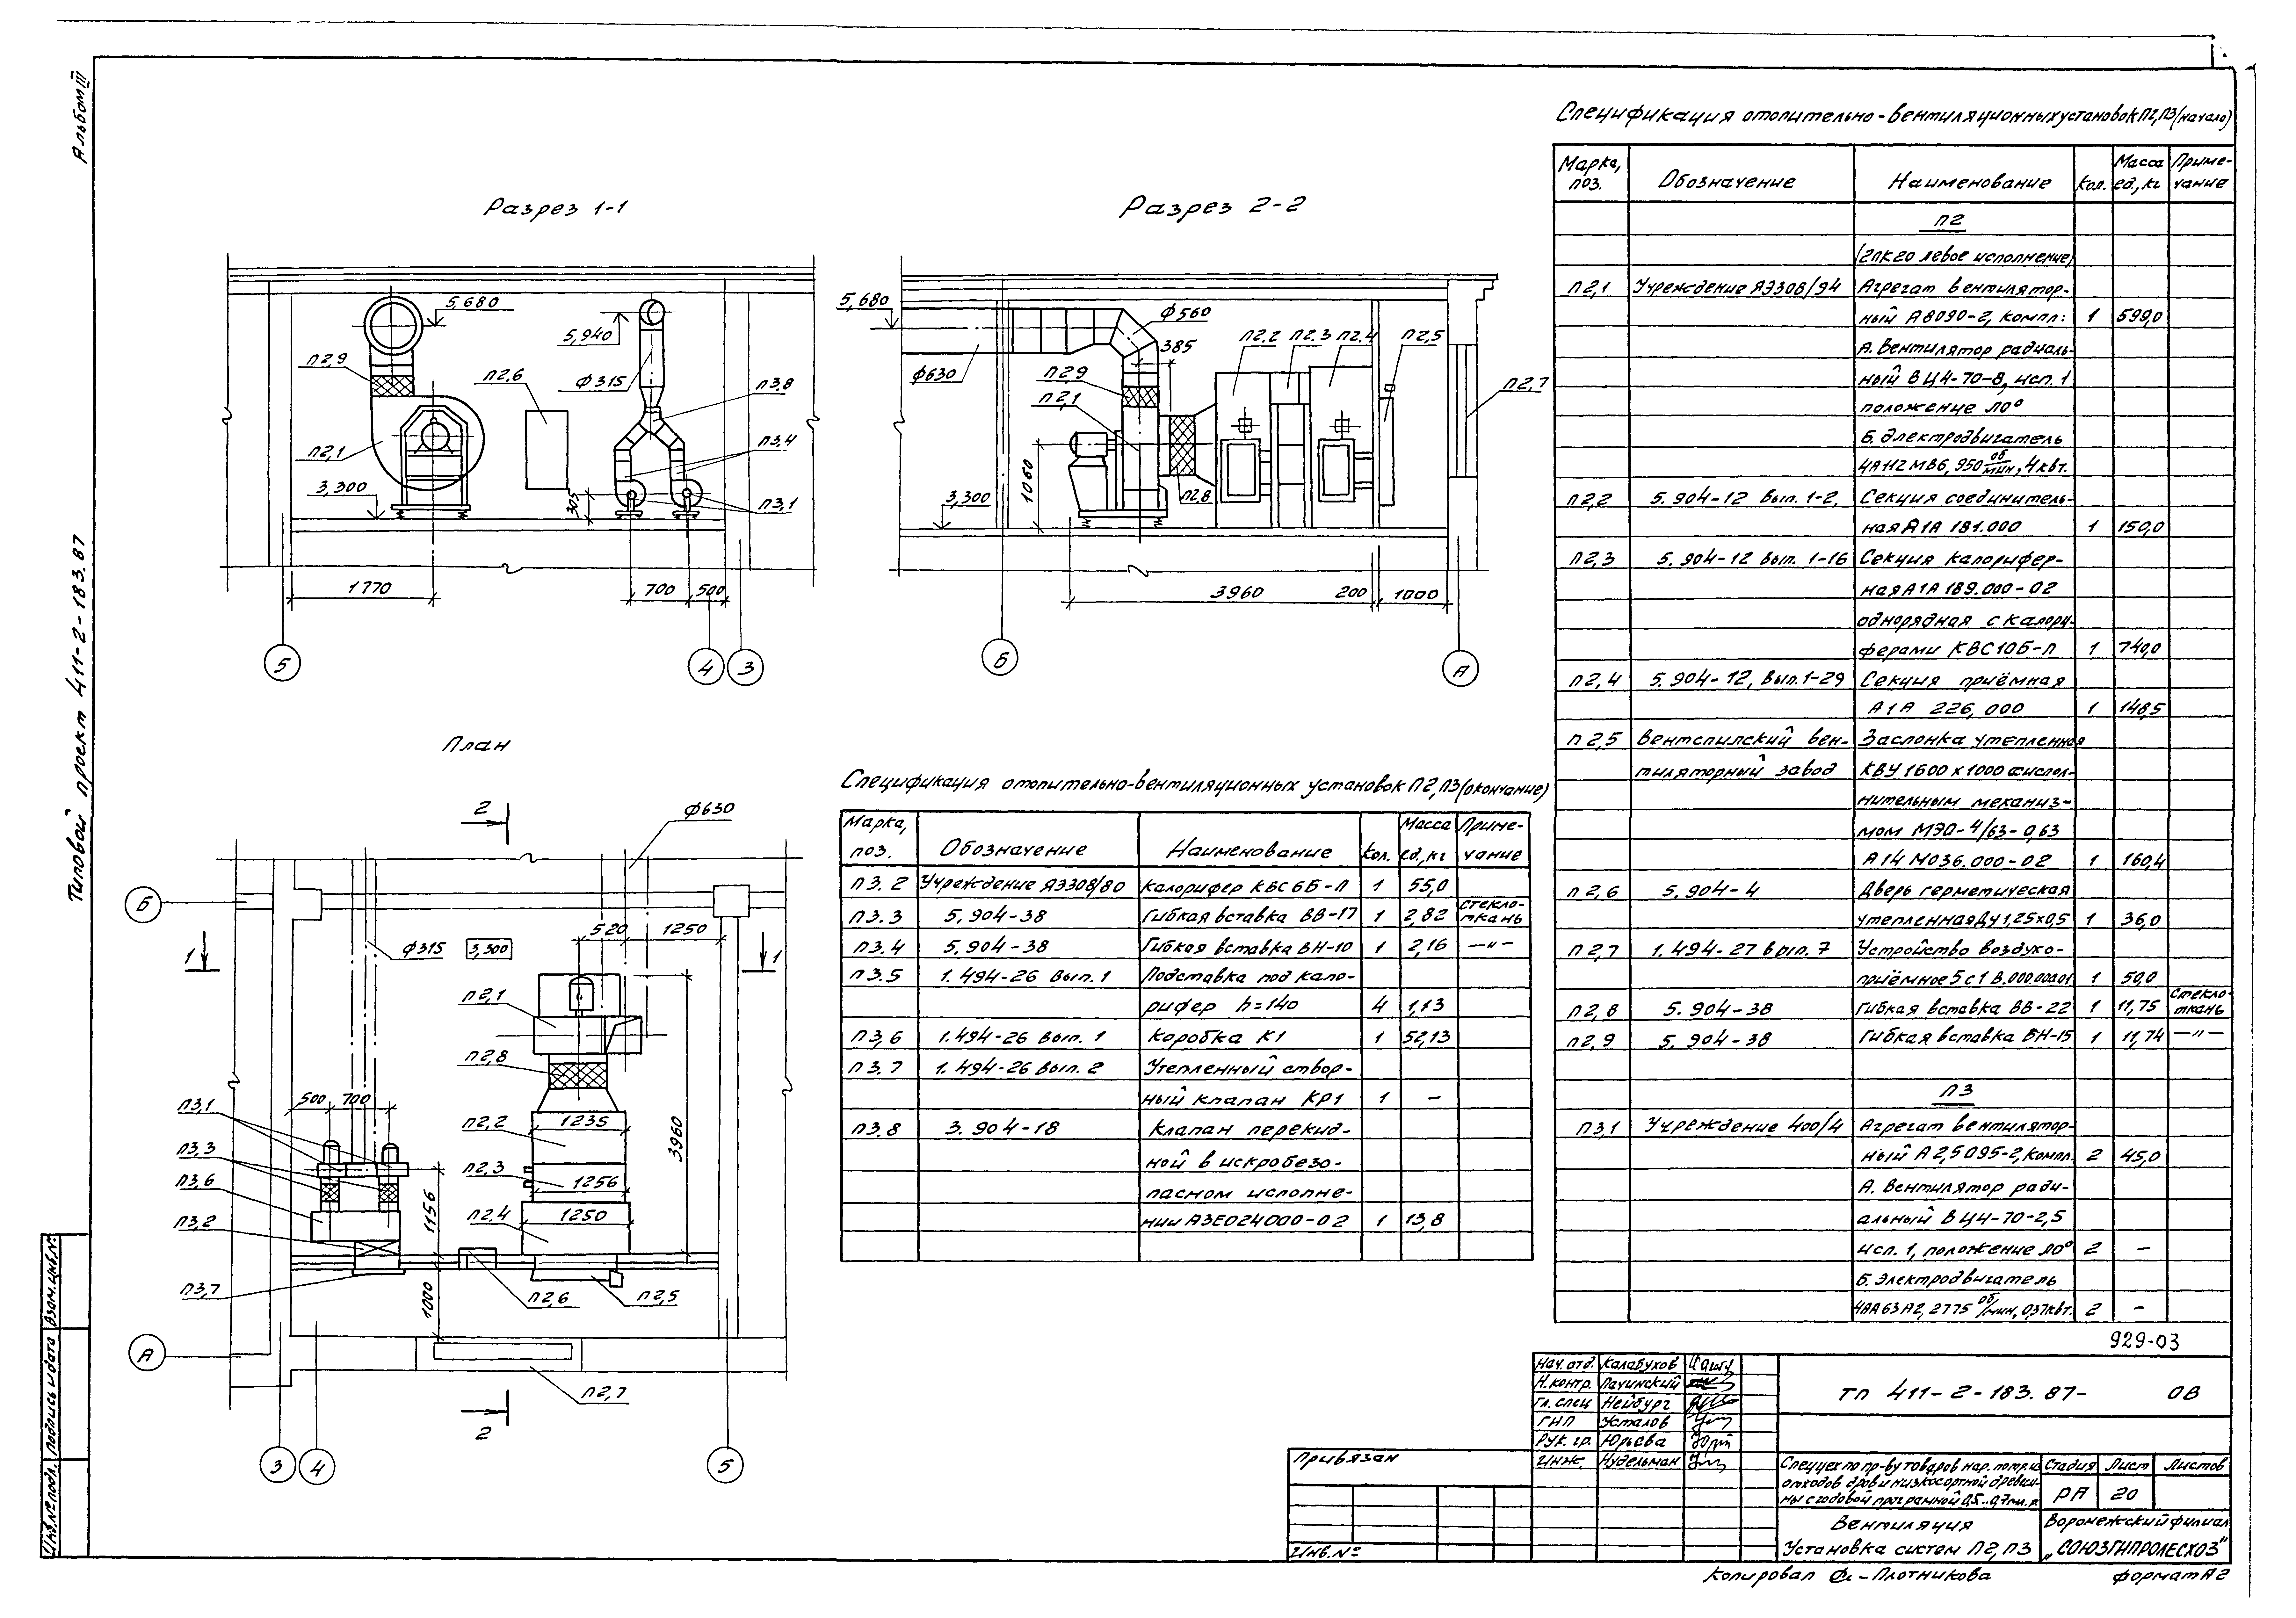 Альбом III
Типовой проект 411-2-183.87
Разрез 1-1
5,680
5,940
П2,9
П2,6
ф315
П3,8
П2,1
П3,4
3,300
305
П3,1
1770
700
500
5
4
3
Разрез 2-2
5,680
ф560
385
П2.2
П2.3
П2.4
П2,5
ф630
П2,9
П2,7
П2,1
1060
3,300
П2.8
3960
200
1000
Б
А
План
2
ф630
Б
520
1250
1
ф315
3,300
1
П2,1
П2,8
500
700
П3,1
П2,2
1235
3960
П3,3
П2,3
П3,6
1256
1156
П3,2
П2.4
1250
П3,7
1000
П2,6
П2,5
А
П2,7
2
3
4
5
Спецификация отопительно-вентиляционных установок П2,П3 (начало)
Марка, поз.
Обозначение
Наименование
Кол.
Масса ед., кг
Примечание
П2
(2ПК20 левое исполнение)
П2,1 Учреждение ЯЭ308/94 Агрегат вентилятор-
ный А8090-2, компл: 1 599,0
А. Вентилятор радиаль-
ный ВЦ4-70-8, исп. 1
положение Л0°
Б. Электродвигатель
4А112МВ6, 950 об/мин, 4квт.
П2,2 5.904-12 вып. 1-2, Секция соединитель-
ная А1А 181.000 1 150,0
П2,3 5.904-12 вып. 1-16 Секция калорифер-
ная А1А 189.000-02
однорядная с калори-
ферами КВС10Б-П 1 740,0
П2,4 5.904-12, вып. 1-29 Секция приёмная
А1А 226,000 1 148,5
П2,5 Вентспилский вен- Заслонка утепленная
тиляторный завод КВУ 1600х1000 с испол-
нительным механиз-
мом МЭО-4/63-0,63
А14М036.000-02 1 160,4
П2,6 5.904-4 Дверь герметическая
утепленная Ду 1,25х0,5 1 36,0
П2,7 1.494-27 вып. 7 Устройство воздухо-
приёмное 5с1 В.000.000.01 1 50,0
П2,8 5.904-38 Гибкая вставка ВВ-22 1 11,75 Стекло-ткань
П2,9 5.904-38 Гибкая вставка ВН-15 1 11,74 —"—
П3
П3,1 Учреждение 400/4 Агрегат вентилятор-
ный А2,5095-2, компл. 2 45,0
А. Вентилятор ради-
альный ВЦ4-70-2,5
исп. 1, положение Л0° 2 —
Б. Электродвигатель
4АА63А2, 2775 об/мин, 0,37квт. 2 —
Спецификация отопительно-вентиляционных установок П2,П3 (окончание)
Марка, поз.
Обозначение
Наименование
Кол.
Масса ед., кг
Примечание
П3.2 Учреждение ЯЭ308/80 Калорифер КВС6Б-П 1 55,0
П3.3 5.904-38 Гибкая вставка ВВ-17 1 2,82 Стекло-ткань
П3.4 5.904-38 Гибкая вставка ВН-10 1 2,16 —"—
П3.5 1.494-26 вып. 1 Подставка под кало-
рифер h=140 4 1,13
П3,6 1.494-26 вып. 1 Коробка К1 1 52,13
П3.7 1.494-26 вып. 2 Утепленный створ-
ный клапан КР1 1 —
П3,8 3.904-18 Клапан перекид-
ной в искробезо-
пасном исполне-
нии А3Е024000-02 1 13,8
929-03
Нач. отд. Калабухов
Н. контр. Пачинский
Гл. спец Нейбург
ГИП Усталов
Рук. гр. Юрьева
Инж. Нудельман
ТП 411-2-183.87- ОВ
Спеццех по пр-ву товаров нар. потр. из
отходов дров и низкосортной древеси-
ны с годовой программой 0,5...0,7 млн. р.
Стадия Лист Листов
РА 20
Вентиляция
Установка систем П2, П3
Воронежский филиал
„СОЮЗГИПРОЛЕСХОЗ"
Привязан
Инв. №
Копировал Плотникова
Формат А2
Взам. инв. №
Подпись и дата
Инв. № подл.